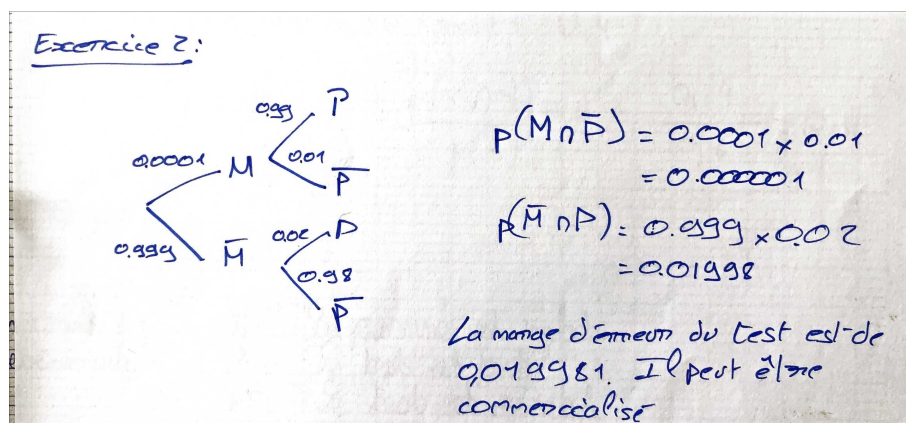 Exercice 2:
0.99 P
0.0001 M 0.01
P̅
0.999 M̅ 0.02 P
0.98
P̅
p(M∩P̅) = 0.0001 × 0.01
= 0.000001
p(M̅∩P) = 0.999 × 0.02
= 0.01998
La marge d'erreur du test est de
0,019981. Il peut être
commercialisé